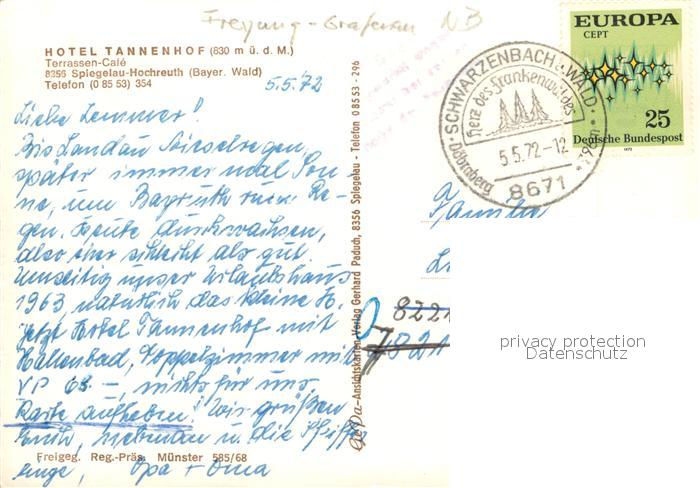 Freyung-Grafenau NB
HOTEL TANNENHOF (830 m ü. d. M.)
Terrassen-Café
8356 Spiegelau-Hochreuth (Bayer. Wald)
Telefon (0 85 53) 354
5.5.72
Liebe Lemmer!
Bis Landau Nieselregen,
später immer mal Son-
ne, um Bayruth rum Re-
gen. Heute durchwachsen,
also eher schlecht als gut.
Umseitig unser Urlaubshaus
1963, natürlich das kleine H.
Jetzt Hotel Tannenhof mit
Hallenbad, Doppelzimmer mit
VP 65,-, nichts für uns.
Karte aufheben! Wir grüßen
Euch, u. die
Opa + Oma
Freigeg. Reg.-Präs. Münster 585/68
AePa-Ansichtskarten-Verlag Gerhard Paduch, 8356 Spiegelau - Telefon 0 85 53 - 296
SCHWARZENBACH a. WALD
Herz des Frankenwaldes
5.5.72-12
Döbraberg
8671
EUROPA
CEPT
25
Deutsche Bundespost
1972
Familie
8221
7821
privacy protection
Datenschutz